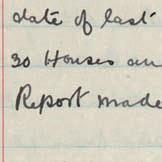 date of last
30 Houses an
Report made